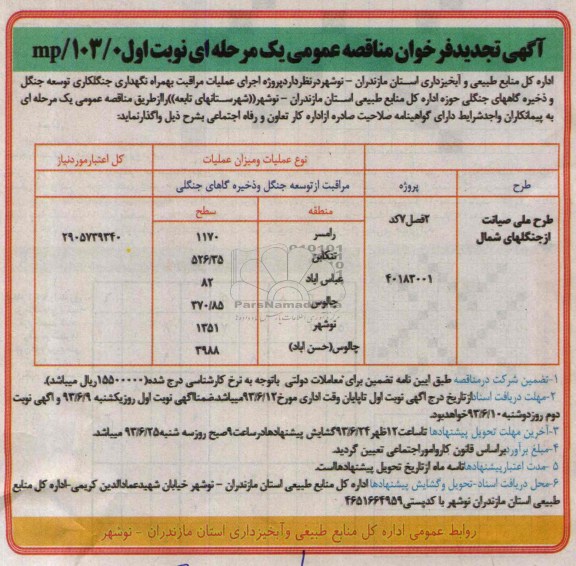 آگهی تجدید فرخوان مناقصه عمومی یک مرحله ای نوبت اول mp/۱۰۳/۰
اداره کل منابع طبیعی و آبخیزداری استان مازندران - نوشهر درنظردارد پروژه اجرای عملیات مراقبت بهمراه نگهداری جنگلکاری توسعه جنگل
و ذخیره گاههای جنگلی حوزه اداره کل منابع طبیعی استان مازندران - نوشهر((شهرستانهای تابعه))را ازطریق مناقصه عمومی یک مرحله ای
به پیمانکاران واجدشرایط دارای گواهینامه صلاحیت صادره ازاداره کار تعاون و رفاه اجتماعی بشرح ذیل واگذارنماید:
نوع عملیات ومیزان عملیات
کل اعتبارموردنیاز
طرح
پروژه
مراقبت ازتوسعه جنگل وذخیره گاهای جنگلی
طرح ملی صیانت
ازجنگلهای شمال
۲فصل۷کد
۴۰۱۸۳۰۰۱
منطقه
سطح
رامسر ۱۱۷۰
تنکابن ۵۲۶/۳۵
عباس اباد ۸۲
چالوس ۳۷۰/۸۵
نوشهر ۱۳۵۱
چالوس(حسن اباد) ۳۹۸۸
۲۹۰۵۷۳۹۳۴۰
ParsNamad
۱-تضمین شرکت درمناقصه طبق ایین نامه تضمین برای معاملات دولتی باتوجه به نرخ کارشناسی درج شده(۱۵۵۰۰۰۰۰ریال میباشد).
۲-مهلت دریافت اسناد ازتاریخ درج اگهی نوبت اول تاپایان وقت اداری مورخ۹۳/۶/۱۲میباشد.ضمنااگهی نوبت اول روزیکشنبه ۹۳/۶/۹ و اگهی نوبت
دوم روزدوشنبه۹۳/۶/۱۰خواهدبود.
۳-آخرین مهلت تحویل پیشنهادها تاساعت۱۲ظهر۹۳/۶/۲۴گشایش پیشنهادهادرساعت۹صبح روزسه شنبه۹۳/۶/۲۵ میباشد.
۴-مبلغ برآوردبراساس قانون کاروامور اجتماعی تعیین گردید.
۵-مدت اعتبارپیشنهادهاتاسه ماه ازتاریخ تحویل پیشنهادهااست.
۶-محل دریافت اسناد-تحویل وگشایش پیشنهادها اداره کل منابع طبیعی استان مازندران - نوشهر خیابان شهیدعمادالدین کریمی-اداره کل منابع
طبیعی استان مازندران نوشهر با کدپستی۴۶۵۱۶۶۴۹۵۹
روابط عمومی اداره کل منابع طبیعی وآبخیزداری استان مازندران - نوشهر